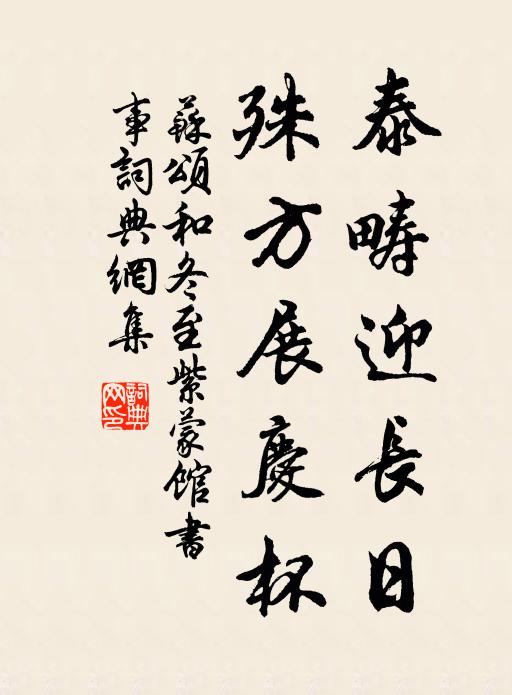 泰疇迎長日
殊方展慶杯
蘇頌和冬至紫蒙館書
事詞典網集
詞典網印